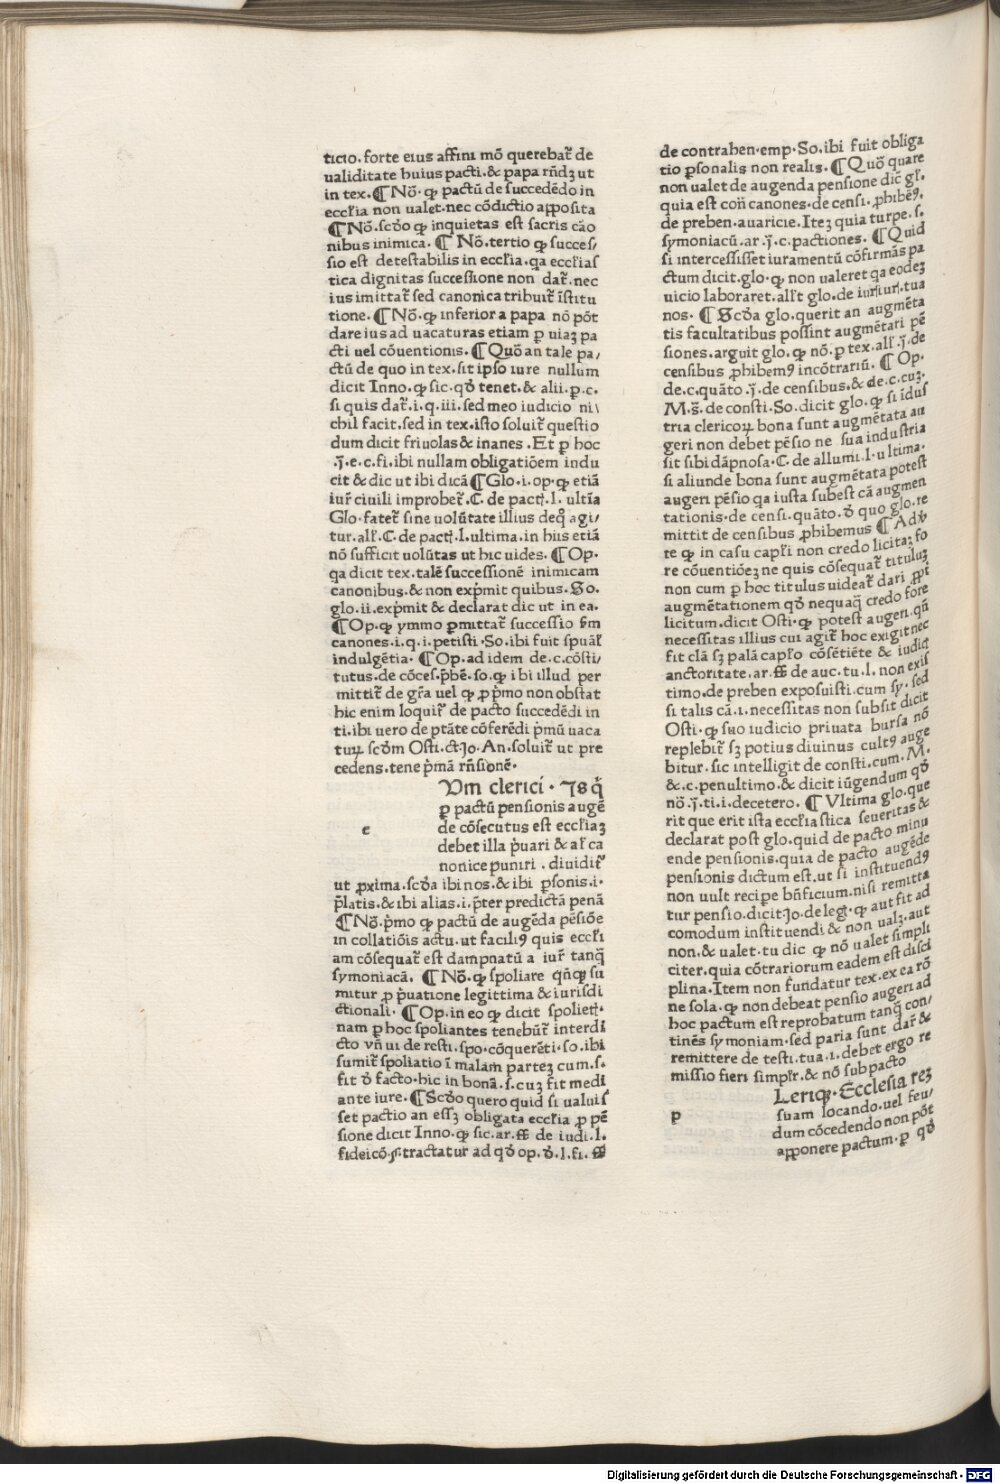 ticio.forte eius affini mō querebat̄ de
ualiditate huius pacti.& papa rn̄dꝫ ut
in tex.¶Nō. ꝙ pactū de succedēdo in
eccl̄ia non ualet.nec cōdictio apposita
¶Nō.scd̄o ꝙ inquietas est sacris cāo
nibus inimica. ¶ Nō.tertio ꝙ succes/
sio est detestabilis in eccl̄ia.qa eccl̄ias
tica dignitas successione non dat̄.nec
ius imittat̄ sed canonica tribuit̄ īstitu
tione.¶Nō.ꝙ inferior a papa nō pōt
dare ius ad uacaturas etiam ꝑ uiaꝫ pa
cti uel cōuentionis.¶Quō an tale pa/
ctū de quo in tex.sit ipso iure nullum
dicit Inno.ꝙ sic.qd̄ tenet.& alii.p.c.
si quis dat̄.i.q.iii.sed meo iudicio ni\
chil facit.sed in tex.isto soluit̄ questio
dum dicit friuolas & inanes .Et ꝑ hoc
.j̄.e.c.fi.ibi nullam obligatiōem indu
cit & dic ut ibi dicā¶Glo.i.op.ꝙ etiā
iur̄ ciuili improbet̄.C.de pact̄.l.ultīa
Glo.fatet̄ sine uolūtate illius deq̊ agi/
tur.all̄.C.de pact̄.l.ultima.in hiis etiā
nō sufficit uolūtas ut hic uides. ¶Op.
qa dicit tex.talē successionē inimicam
canonibus.& non exp̄mit quibus.So.
glo.ii.exp̄mit & declarat dic ut in ea.
¶Op.ꝙ ymmo ꝑmittat̄ successio sm̄
canones.i.q.i.petisti.So.ibi fuit spūal̄
indulgētia. ¶Op.ad idem de.c.cōsti/
tutus.de cōces.p̄bē.so.ꝙ ibi illud per
mittit̄ de gr̄a uel ꝙ ꝓ p̄mo non obstat
hic enim loquit̄ de pacto succedēdi in
ti.ibi uero de ptāte cōferēdi p̄mū uaca
tuꝝ scd̄m Osti.ct.Jo.An.soluit̄ ut pre
cedens.tene p̄mā rn̄sionē.
Vm clerici . Is q̄
ꝑ pactū pensionis augē
e de cōsecutus est eccl̄iaꝫ
debet illa p̄uari & al̄ ca
nonice puniri . diuidit̄
ut ꝓxima.scd̄a ibi nos.& ibi ꝑsonis.i.
p̄latis.& ibi alias.i.p̄ter predictā penā
¶Nō.p̄mo ꝙ pactū de augēda pēsiōe
in collatiōis actu.ut faciliꝰ quis eccl̄i
am cōsequat̄ est dampnatū a iur̄ tanq̄
symoniacā. ¶Nō.ꝙ spoliare qn̄qꝫ su
mitur ꝓ p̄uatione legittima & iurisdi
ctionali. ¶Op.in eo ꝙ dicit spoliet̄.
nam ꝑ hoc spoliantes tenebūt̄ interdi
cto vn̄ ui de resti.spo.cōquerēti.so.ibi
sumit̄ spoliatio ī malam partez cum.s.
fit ꝺ̄ facto.hic in bonā.s.cuꝫ fit medi
ante iure.¶Scd̄o quero quid si ualuis
set pactio an essꝫ obligata eccl̄ia ꝓ pē
sione dicit Inno.ꝙ sic.ar.ff de iudi.l.
fideicō.§.tractatur ad qd̄ op.ꝺ̄.l.fi.ff
de contrahen.emp.So.ibi fuit obliga
tio ꝑsonalis non realis. ¶Quō quare
non ualet de augenda pensione dic̄ gl̄.
quia est con̄ canones.de censi.ꝓhibēꝰ.
de preben.auaricie.Iteꝫ quia turpe.s.
symoniacū.ar.j̄.c.pactiones. ¶Quid
si intercessisset iuramentū cōfirmās pa
ctum dicit.glo.ꝙ non ualeret qa eodeꝫ
uicio laboraret.all̄t glo.de iur̄iur̄.tua
nos. ¶Scd̄a glo.querit an augmēta
tis facultatibus possint augmētari pē
siones.arguit glo.ꝙ nō.ꝑ tex.all̄.j̄.de
censibus ꝓhibemꝰ incōtrariū. ¶Op.
de.c.quāto.j̄.de censibus.& de.c.cuꝫ.
M.s̄.de consti.So.dicit glo.ꝙ si īdus
tria clericoꝝ bona sunt augmētata au
geri non debet pēsio ne sua industria
sit sibi dāpnosa.C.de allumi.l.ultima.
si aliunde bona sunt augmētata potest
augeri pēsio qa iusta subest cā augmen
tationis.de censi.quāto.ꝺ̄ quo glo.re
mittit de censibus ꝓhibemus ¶Adu̇
te ꝙ in casu capl̄i non credo licitaꝫ fo
re cōuentiōeꝫ ne quis cōsequat̄ tituluꝫ
non cum ꝑ hoc titulus uideat̄ dari ꝓpt̄
augmētationem qd̄ nequaq̄ credo fore
licitum.dicit Osti.ꝙ potest augeri.qn̄
necessitas illius cui agit̄ hoc exigit nec
fit clā sꝫ palā capl̄o cōsētiēte & iudic̄
anctoritate.ar.ff de auc.tu.l.non exis
timo.de preben exposuisti.cum sy.sed
si talis cā.ı.necessitas non subsit dicit
Osti.ꝙ suo iudicio priuata bursa nō
replebit̄ sꝫ potius diuinus cultꝰ auge
bitur.sic intelligit de consti.cum.M.
&.c.penultimo.& dicit iūgendum qd̄
nō.j̄.ti.i.decetero. ¶Vltima glo.que
rit que erit ista eccl̄iastica seueritas &
declarat post glo.quid de pacto minu
ende pensionis.quia de pacto augēde
pensionis dictum est.ut si instituendꝰ
non uult recipe bn̄ficium.nisi remitta
tur pensio.dicit Jo.de leḡ.ꝙ aut fit ad
comodum instituendi & non ualꝫ.aut
non.& ualet.tu dic ꝙ nō ualet simpli
citer.quia cōtrariorum eadem est disci
plina.Item non fundatur tex.ex ea rō
ne sola.ꝙ non debeat pensio augeri ad
hoc pactum est reprobatum tanq̄ con/
tinēs symoniam.sed paria sunt dar̄ &
remittere de testi.tua.ı.debet ergo re
missio fieri simpl̄r.& nō sub pacto
Leriqꝫ. Ecclesia reꝫ
p suam locando.uel feu/
dum cōcedendo non pōt
apponere pactum.ꝑ qd̄
Digitalisierung gefördert durch die Deutsche Forschungsgemeinschaft - DFG